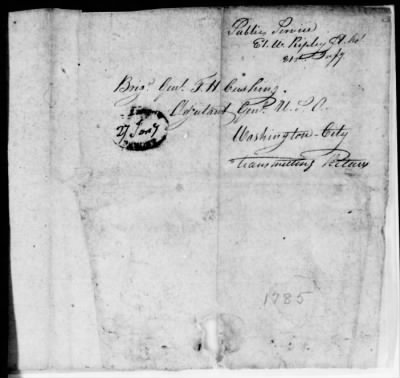 Public Service
E. W. Ripley
21st Infy
Brigr Genl T. H. Cushing.
Adjutant Genl U. S. A.
27 Jany
Washington City
transmitting Return
1785